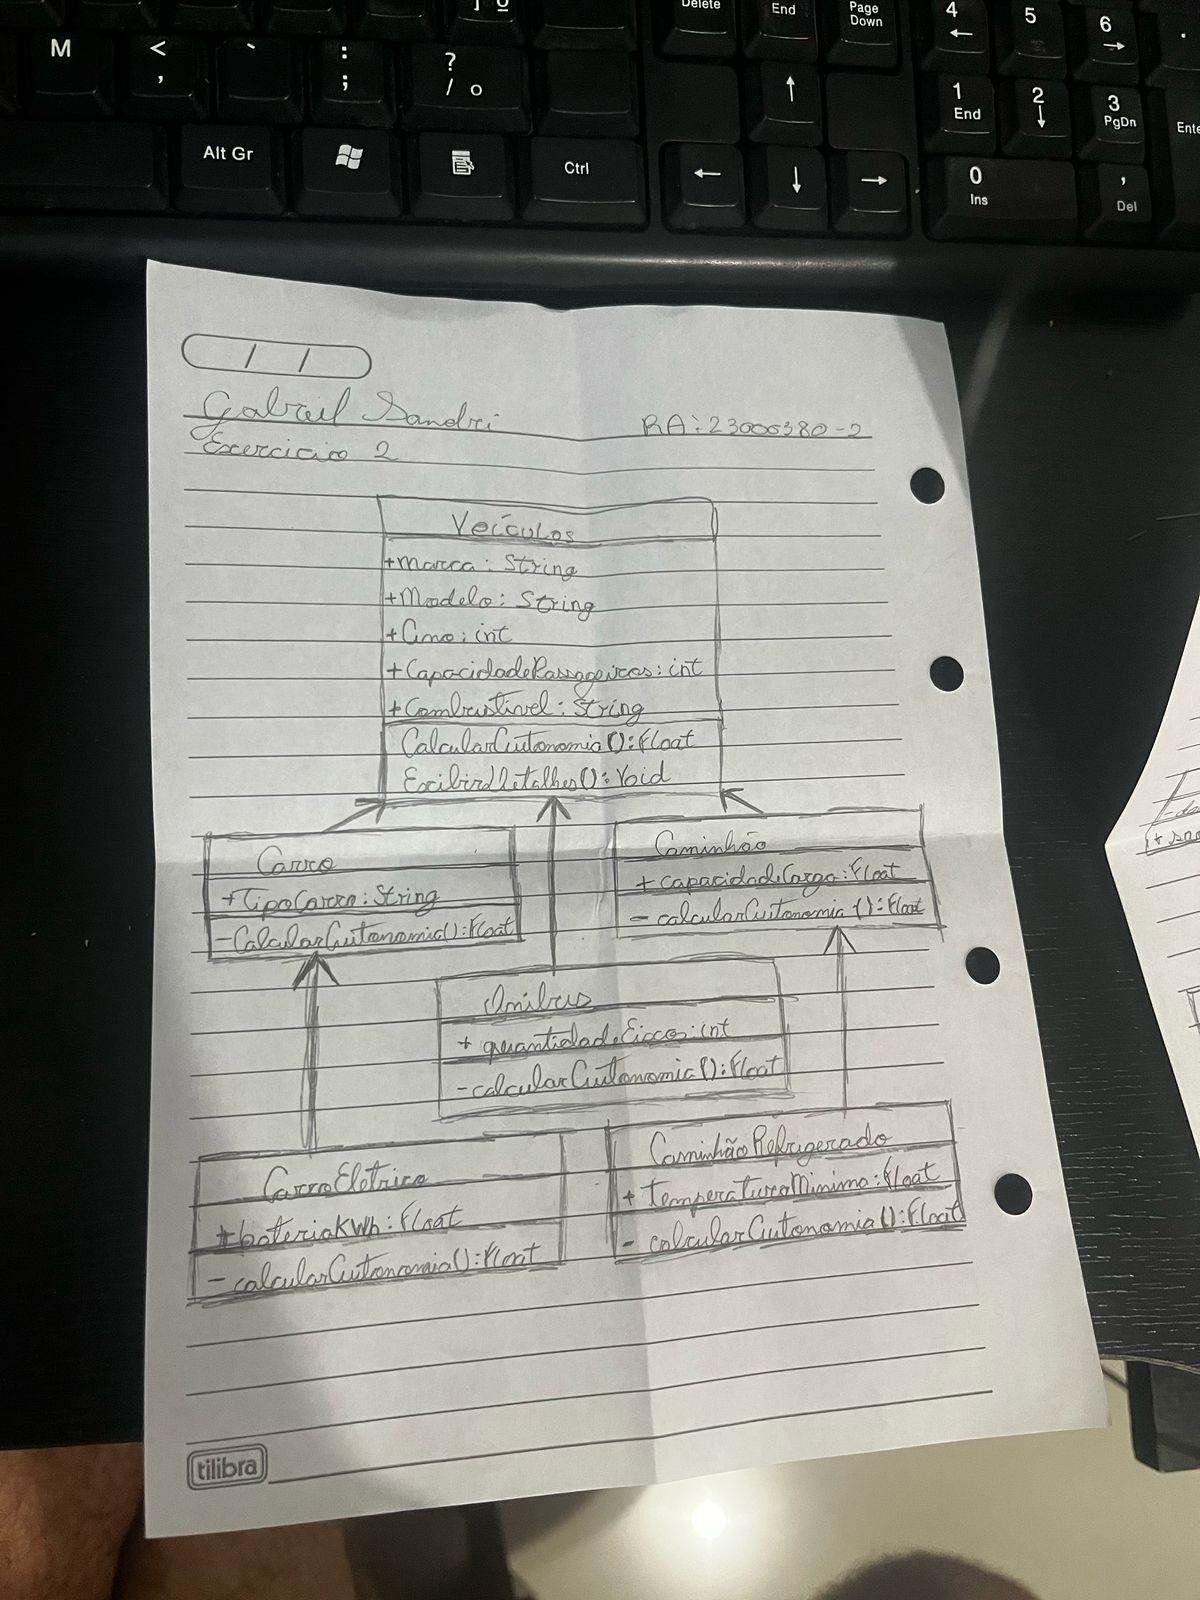 Delete
End
Page
Down
4
5
6
M
<
,
`
:
;
?
/ o
1
End
2
3
PgDn
Ente
Alt Gr
Ctrl
0
Ins
,
Del
/ /
Gabriel Sandri RA: 23006380-2
Exercicio 2
Veículos
+Marca: String
+Modelo: String
+Ano: int
+CapacidadePassageiros: int
+Combustivel: String
CalcularAutonomia(): Float
ExibirDetalhes(): Void
Carro
+TipoCarro: String
-CalcularAutonomia(): Float
Caminhão
+ capacidadeCarga: Float
- calcularAutonomia(): Float
Onibus
+ quantidadeEixos: int
- calcularAutonomia(): Float
CarroEletrico
+bateriaKWh: Float
- calcularAutonomia(): Float
CaminhãoRefrigerado
+ temperaturaMinima: Float
- calcularAutonomia(): Float
tilibra